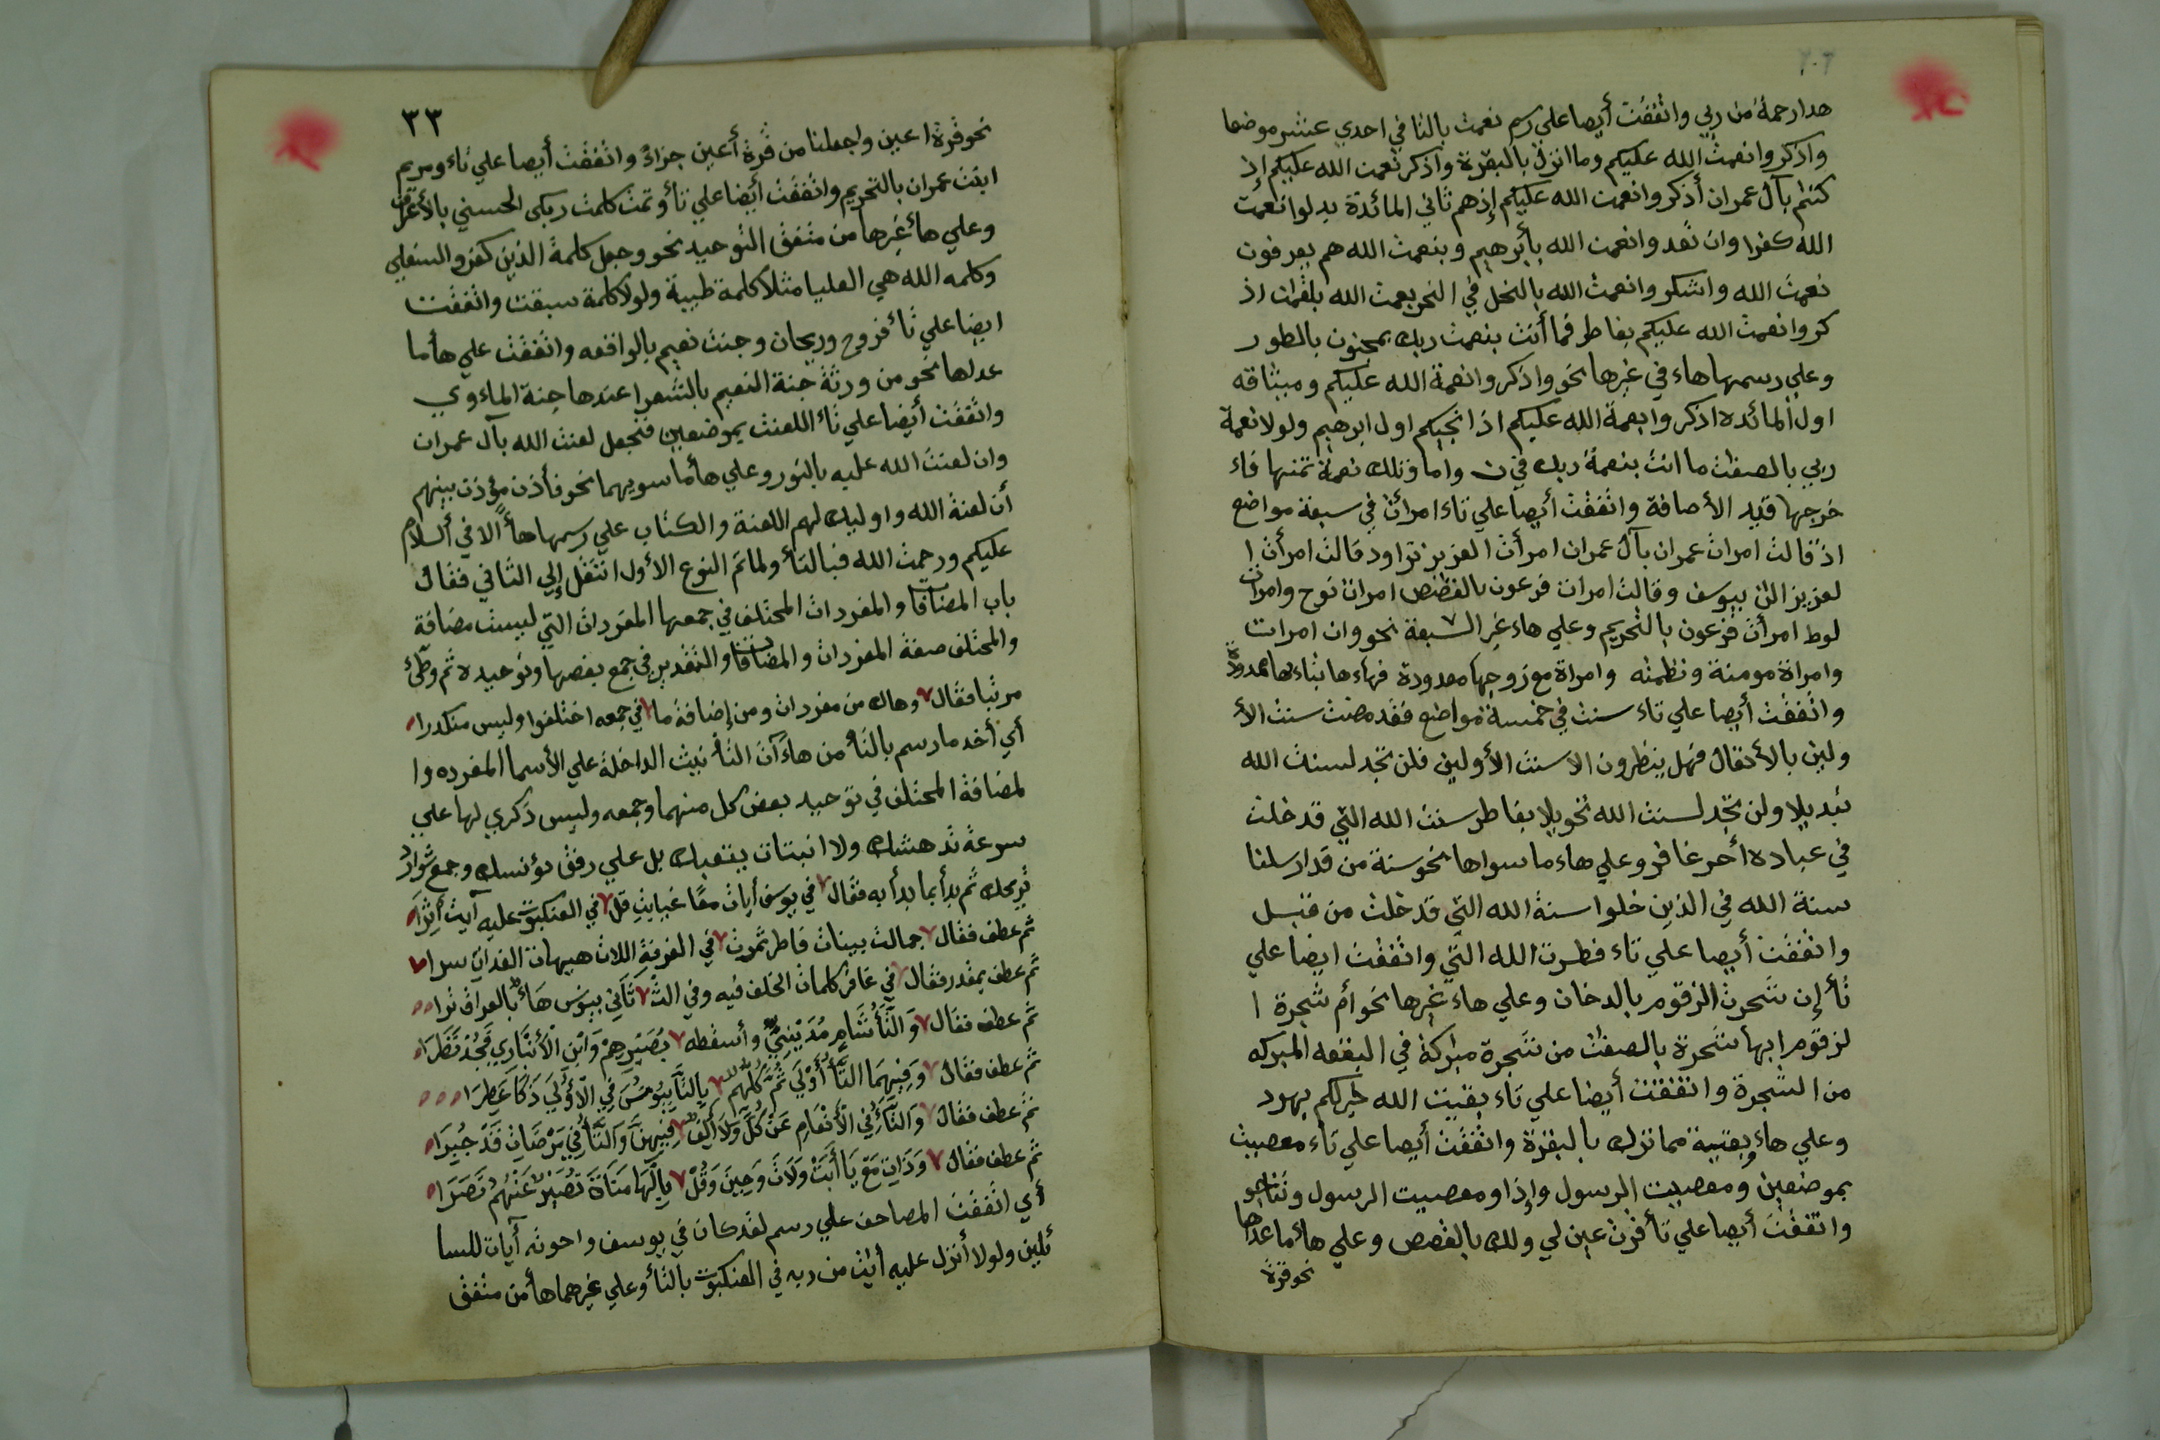 هدا رحمة من ربي واتفقت أيصا علي رسم نعمت بالتا في احدي عنشر موضعا
واذكروا نعمت الله عليكم وما انزل بالبقرة واذكر نعمت الله عليكم إذ
كنتم بآل عمران أذكروا نعمت الله عليكم إذهم ثاني المائدة بدلوا نعمت
الله كفرا وان تعدوا نعمت الله بأبرهيم وبنعمت الله هم يعرفون
نعمت الله واشكروا نعمت الله بالنحل في البحر بعمت الله بلقمان اذ
كروا نعمت الله عليكم بفاطر فما أنت بنعمت ربك بمجنون بالطور
وعلي رسمها هاء في غيرها نحو واذكروا نعمة الله عليكم وميثاقه
اول المائده اذكروا نعمة الله عليكم اذ انجيكم اول ابرهيم ولولا نعمة
ربي بالصفت ما انت بنعمة ربك في ن واما وتلك نعمة تمنها فاء
خرجها قيد الأصافة واتفقت أيصا علي تاء امرات في سبعة مواضع
اذ قالت امرات عمران بآل عمران امرأت العزيز تراود قالت امرأت ا
لعزيز الن بيوسف وقالت امرات فرعون بالقصص امرات نوح وامرات
لوط امرأت فرعون بالتحريم وعلي هاء غير السبعة نحو وان امرات
وامراة مومنة ونظمته وامراة مع زوجها معدودة فهاءها بتاءها معدودة
واتفقت أيصا علي تاء سنت في خمسة مواضع فقد مضت سنت الأ
ولين بالأنقال فهل ينظرون الا سنت الأولين فلن تجد لسنت الله
تبديلا ولن تجد لسنت الله تحويلا بفاطر سنت الله التي قد خلت
في عباده أخر غافر وعلي هاء ما سواها نحو سنة من قد ارسلنا
سنة الله في الذين خلوا سنة الله التي قد خلت من قبل
واتفقت أيصا علي تاء فطرت الله التي واتفقت ايضا علي
تأ إن شجرت الزقوم بالدخان وعلي هاء غيرها نحو أم شجرة ا
لزقوم ابها شجرة بالصفت من شجرة مبركة في البقعه المبركه
من الشجرة واتفقت أيضا علي تاء بقيت الله خيركم بهود
وعلي هاء وبقية مما ترك بالبقرة واتفقت أيصا علي تاء معصيت
بموضعين ومعصيت الرسول وإذا ومعصيت الرسول وتناجو
واتفقت أيصا علي تأ قرت عين لي ولك بالقصص وعلي هأ ما عداها
نحو قرة
٣٣
نحو قرة اعين واجعلنا من قرة أعين جزاء واتفقت أيصا علي تاء ومريم
ابنت عمران بالتحريم واتفقت أيضا علي تأ وتمت كلمت ربك الحسني بالأعراف
وعلي هأ غيرها من متفق التوحيد نحو وجعل كلمة الذين كفروا السفلي
وكلمه الله هي العليا مثلا كلمة طيبة ولولا كلمة سبقت واتفقت
ايضا علي تأ فروح وريحان وجنت نعيم بالواقعه واتفقت علي هأ ما
عدلها نحو من ورثة جنة النعيم بالشعرا عندها جنة الماءوي
واتفقت أيضا علي تاء اللعنت بموضعين فنجعل لعنت الله بآل عمران
وان لعنت الله عليه بالنور وعلي هأ ما سويهما نحو فأذن موذن بينهم
أن لعنة الله واوليك لهم اللعنة والكتاب علي رسمها هأ الا في السلام
عليكم ورحمت الله فبالتأ ولما تم النوع الأول انتقل إلي الثاني فقال
باب المضافات والمفردات المختلف في جمعها المفردات التي ليست مضافة
والمختلف صفة المفردات والمضافات والتقدير في جمع بعصها وتوحيده ثم وطئ
مرتبا فقال وهاك من مفردات ومن إضافة ما في جمعه اختلفوا وليس منكدرا
أي أخد ما رسم بالتأ من هاءآت التأنيث الداخلة علي الأسما المفرده وا
لمضافة المختلف في توحيد بعض كل منهما وجمعه وليس ذكري لها علي
سرعة تدهشك ولا انبتات يتعبك بل علي رفق يؤنسك وجمع شوارد
تريحك ثم بدأ بما بدأ به فقال في يوسف أيات معا غيابت قل في العنكبوت عليه آيت أثرا
ثم عطف فقال جمالت بينات فاطر ثمرت في الغرفة اللات هيهات العذاب سرا
ثم عطف بمقدر فقال في غافر كلمات الخلف فيه وفي الثـ ثاني بيونس هاء بالعراق نرا
ثم عطف فقال والتأ شام مديني وأسقطه بصيرهم وابن الأنباري فجد نظرا
ثم عطف فقال وفيهما التأ أولي ثم كلهم بالتأ بيونس في الأولي ذكا عطرا
ثم عطف فقال والتأ في الأنعام عن كل ولا ألف فيهن والتأ في مرضات قد جبرا
ثم عطف فقال وذات مع يا أبت ولات وحين وقل بالها مناة نصير عنهم نصرا
أي اتفقت المصاحف علي رسم لقد كان في يوسف واحوته آيات للسا
ئلين ولولا أنزل عليه أيت من ربه في العنكبوت بالتأ وعلي غيرهما هأ من متفق